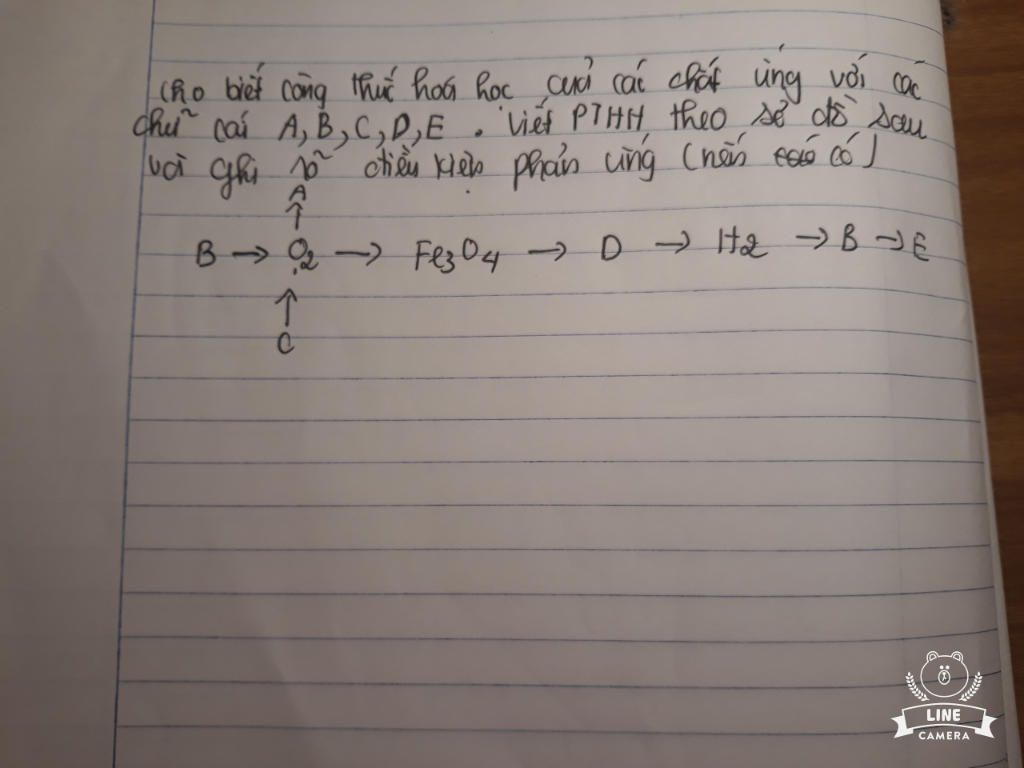 cho biết công thức hoá học cuả các chất ứng với các
chữ cái A, B, C, D, E . Viết PTHH theo sơ đồ sau
và ghi rõ điều kiện phản ứng (nếu có)
A
↑
B → O2 → Fe3O4 → D → H2 → B → E
↑
C
LINE
CAMERA